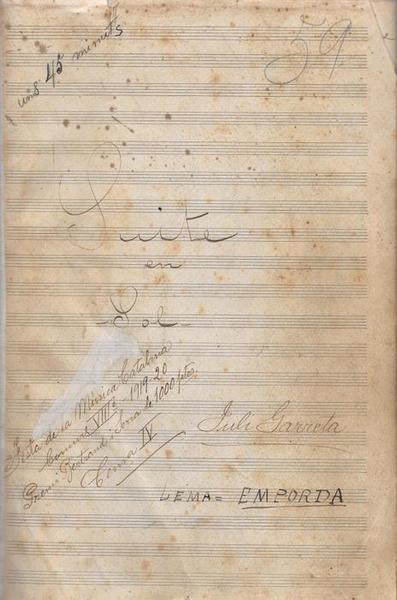 uns 45 minuts
59
Suite
en
Sol
Festa de la Música Catalana
Concurs VIIIè - 1919-20
Premi de 1000 ptes.
Tema IV
Juli Garreta
LEMA = EMPORDA